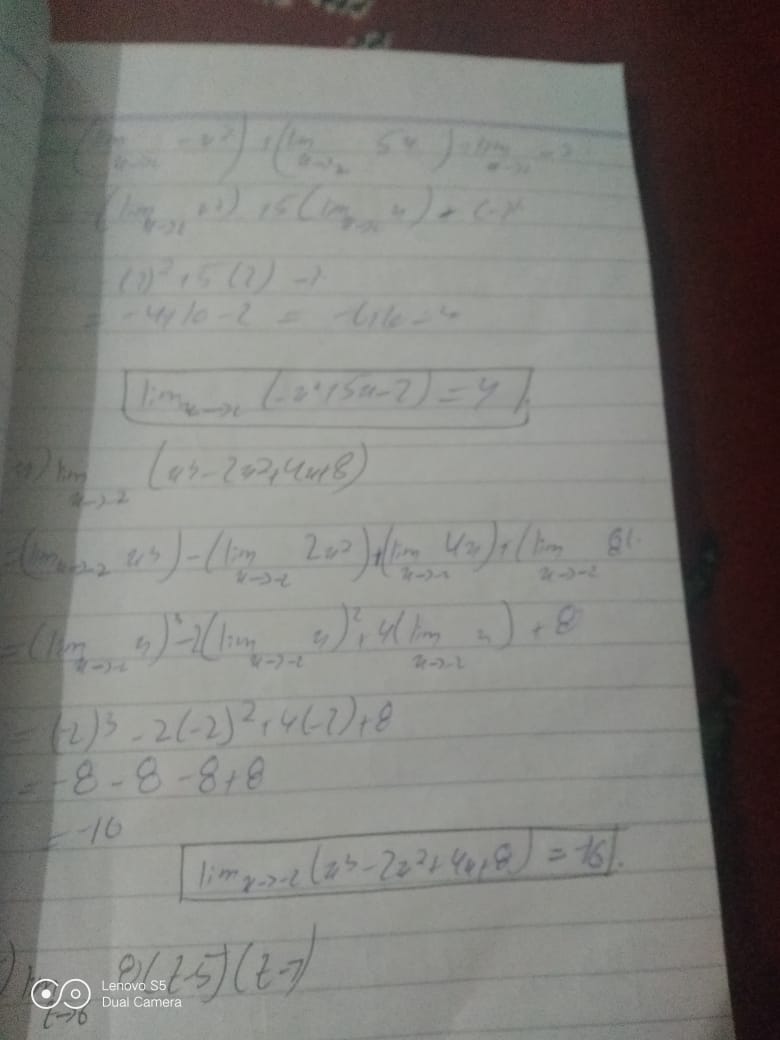 (lim x→2 -x²) + (lim x→2 5x) - lim x→2 2
(lim x→2 x²) + 5(lim x→2 x) + (-2)
(2)² + 5(2) - 2
= -4+10-2 =
lim x→2 (-x²+5x-2) = 4
lim x→-2 (x³-2x²+4x+8)
= (lim x→-2 x³) - (lim x→-2 2x²) + (lim x→-2 4x) + (lim x→-2 8).
= (lim x→-2 x)³ - 2(lim x→-2 x)² + 4(lim x→-2 x) + 8
= (-2)³ - 2(-2)² + 4(-2) + 8
= -8 - 8 - 8 + 8
= -16
lim x→-2 (x³-2x²+4x+8) = -16.
8(t-5)(t-7)
t→6
Lenovo S5
Dual Camera